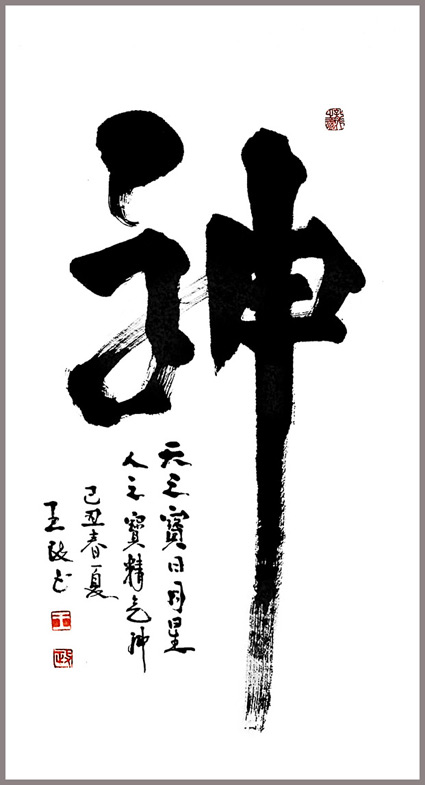 神
天之寶日月星
人之寶精气神
己丑春夏
王政书
王
政